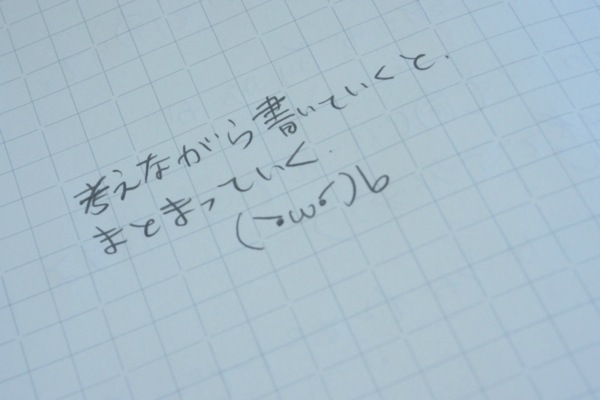 考えながら書いていくと.
まとまっていく.
(•̀ω•́)b